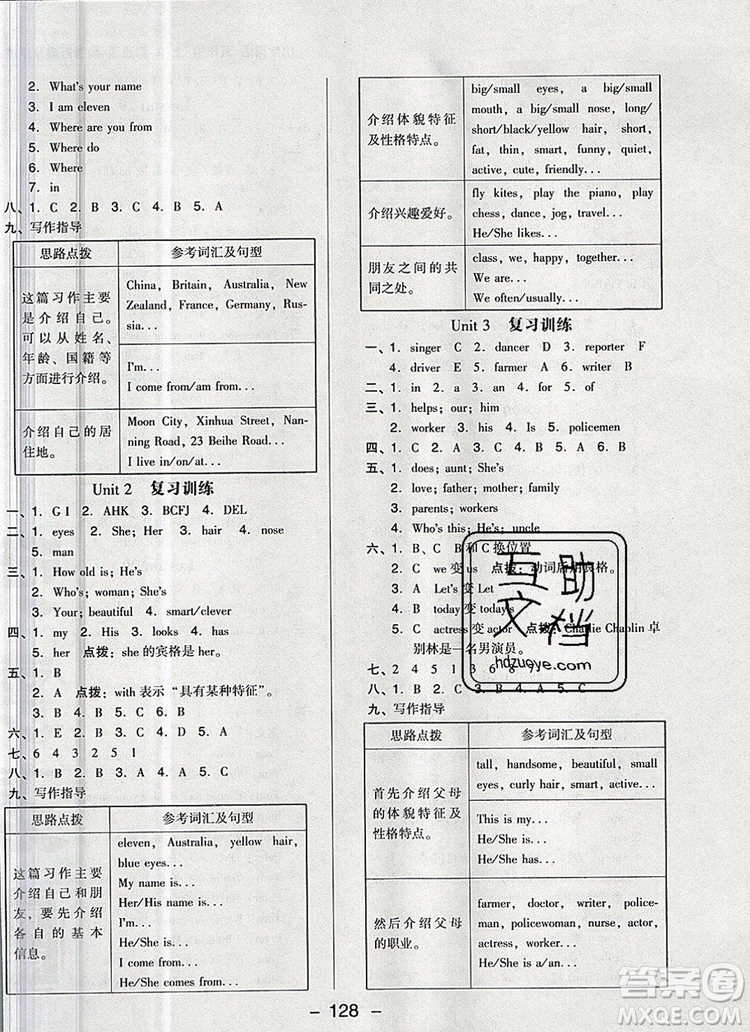 2. What's your name
3. I am eleven
4. Where are you from
5. Where do
6. Where
7. in
八、1. C 2. B 3. C 4. B 5. A
九、写作指导
思路点拨 参考词汇及句型
这篇习作主要
是介绍自己。
可以从姓名、
年龄、国籍等
方面进行介绍。
China, Britain, Australia, New
Zealand, France, Germany, Rus-
sia...
I'm...
I come from/am from...
介绍自己的居
住地。
Moon City, Xinhua Street, Nan-
ning Road, 23 Beihe Road...
I live in/on/at...
Unit 2 复习训练
一、1. GI 2. AHK 3. BCFJ 4. DEL
二、1. eyes 2. She; Her 3. hair 4. nose
5. man
三、1. How old is; He's
2. Who's; woman; She's
3. Your; beautiful 4. smart/clever
四、1. my 2. His 3. looks 4. has
5. her 点拨：she 的宾格是 her。
五、1. B
2. A 点拨：with 表示“具有某种特征”。
3. B 4. C 5. C 6. B
六、1. E 2. B 3. C 4. D 5. A
七、6 4 3 2 5 1
八、1. B 2. B 3. A 4. A 5. C
九、写作指导
思路点拨 参考词汇及句型
这篇习作主要
介绍自己和朋
友，要先介绍
各自的基本
信息。
eleven, Australia, yellow hair,
blue eyes...
My name is...
Her/His name is...
I'm...
He/She is...
I come from...
He/She comes from...
介绍体貌特征
及性格特点。
big/small eyes, a big/small
mouth, a big/small nose, long/
short/black/yellow hair, short,
fat, thin, smart, funny, quiet,
active, cute, friendly...
介绍兴趣爱好。
fly kites, play the piano, play
chess, dance, jog, travel...
He/She likes...
朋友之间的共
同之处。
class, we, happy, together...
We are...
We often/usually...
Unit 3 复习训练
一、1. singer C 2. dancer D 3. reporter F
4. driver E 5. farmer A 6. writer B
二、1. in 2. a 3. an 4. for 5. of
三、1. helps; our; him
2. worker 3. his 4. Is 5. policemen
四、1. C 2. A 3. C 4. B 5. A
五、1. does; aunt; She's
2. love; father; mother; family
3. parents; workers
4. Who's this; He's; uncle
六、1. B, C B和C换位置
2. C we 变 us 点拨：动词后用宾格。
3. A Let's 变 Let
4. B today 变 today's
5. C actress 变 actor 点拨：Charlie Chaplin 卓
别林是一名男演员。
七、2 4 5 1 3 6 8 9
八、1. B 2. B 3. B 4. A 5. C
九、写作指导
思路点拨 参考词汇及句型
首先介绍父母
的体貌特征及
性格特点。
tall, handsome, beautiful, small
eyes, curly hair, smart, active...
This is my...
He/She is...
He/She has...
然后介绍父母
的职业。
farmer, doctor, writer, police-
man, policewoman, nurse, actor,
actress, worker...
He/She is a/an...
- 128 -
互助
文档
hdzuoye.com
答案圈
MXQE.COM